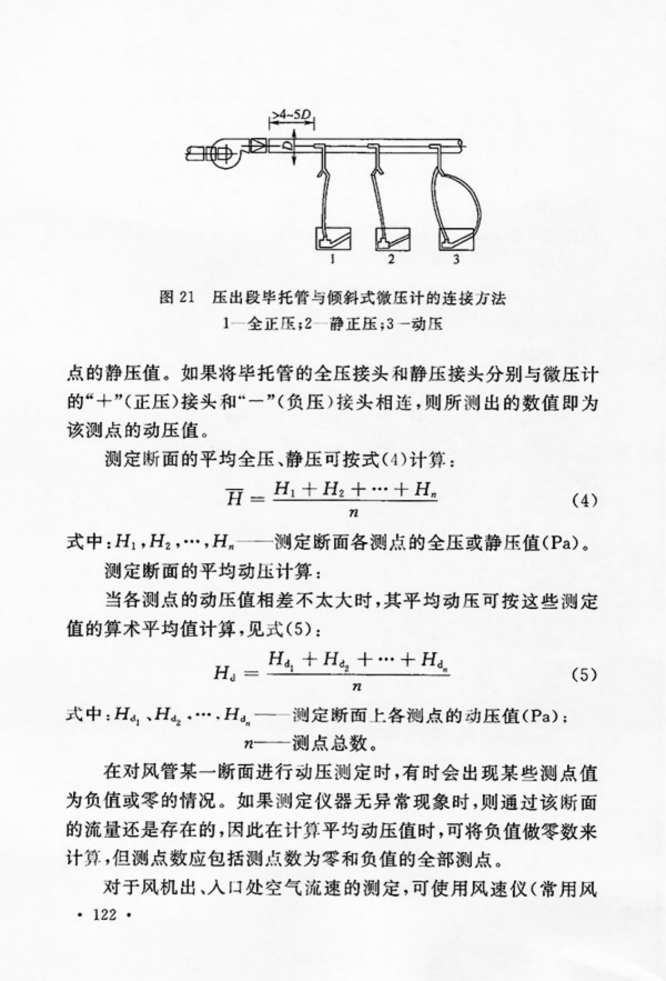 >4~5D
D
1 2 3
图 21 压出段毕托管与倾斜式微压计的连接方法
1—全正压;2—静正压;3—动压
点的静压值。如果将毕托管的全压接头和静压接头分别与微压计
的“+”(正压)接头和“—”(负压)接头相连,则所测出的数值即为
该测点的动压值。
测定断面的平均全压、静压可按式(4)计算:
H̅ = (H₁ + H₂ + ··· + Hₙ) / n (4)
式中:H₁,H₂,···,Hₙ——测定断面各测点的全压或静压值(Pa)。
测定断面的平均动压计算:
当各测点的动压值相差不太大时,其平均动压可按这些测定
值的算术平均值计算,见式(5):
H_d = (H_d₁ + H_d₂ + ··· + H_dₙ) / n (5)
式中:H_d₁、H_d₂,···,H_dₙ——测定断面上各测点的动压值(Pa);
n——测点总数。
在对风管某一断面进行动压测定时,有时会出现某些测点值
为负值或零的情况。如果测定仪器无异常现象时,则通过该断面
的流量还是存在的,因此在计算平均动压值时,可将负值做零数来
计算,但测点数应包括测点数为零和负值的全部测点。
对于风机出、入口处空气流速的测定,可使用风速仪(常用风
· 122 ·